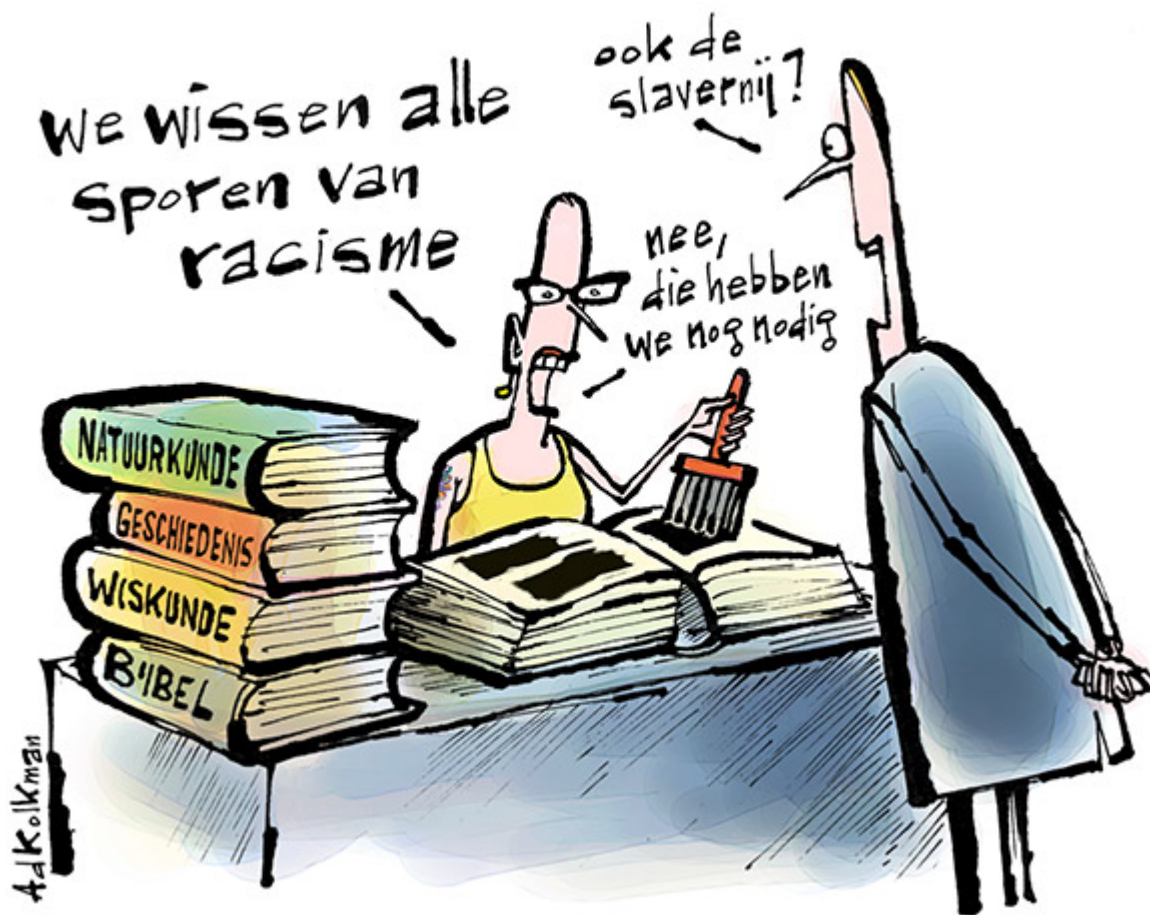 we wissen alle
sporen van
racisme
ook de
slavernij?
nee,
die hebben
we nog nodig
NATUURKUNDE
GESCHIEDENIS
WISKUNDE
BIJBEL
Ad Kolkman